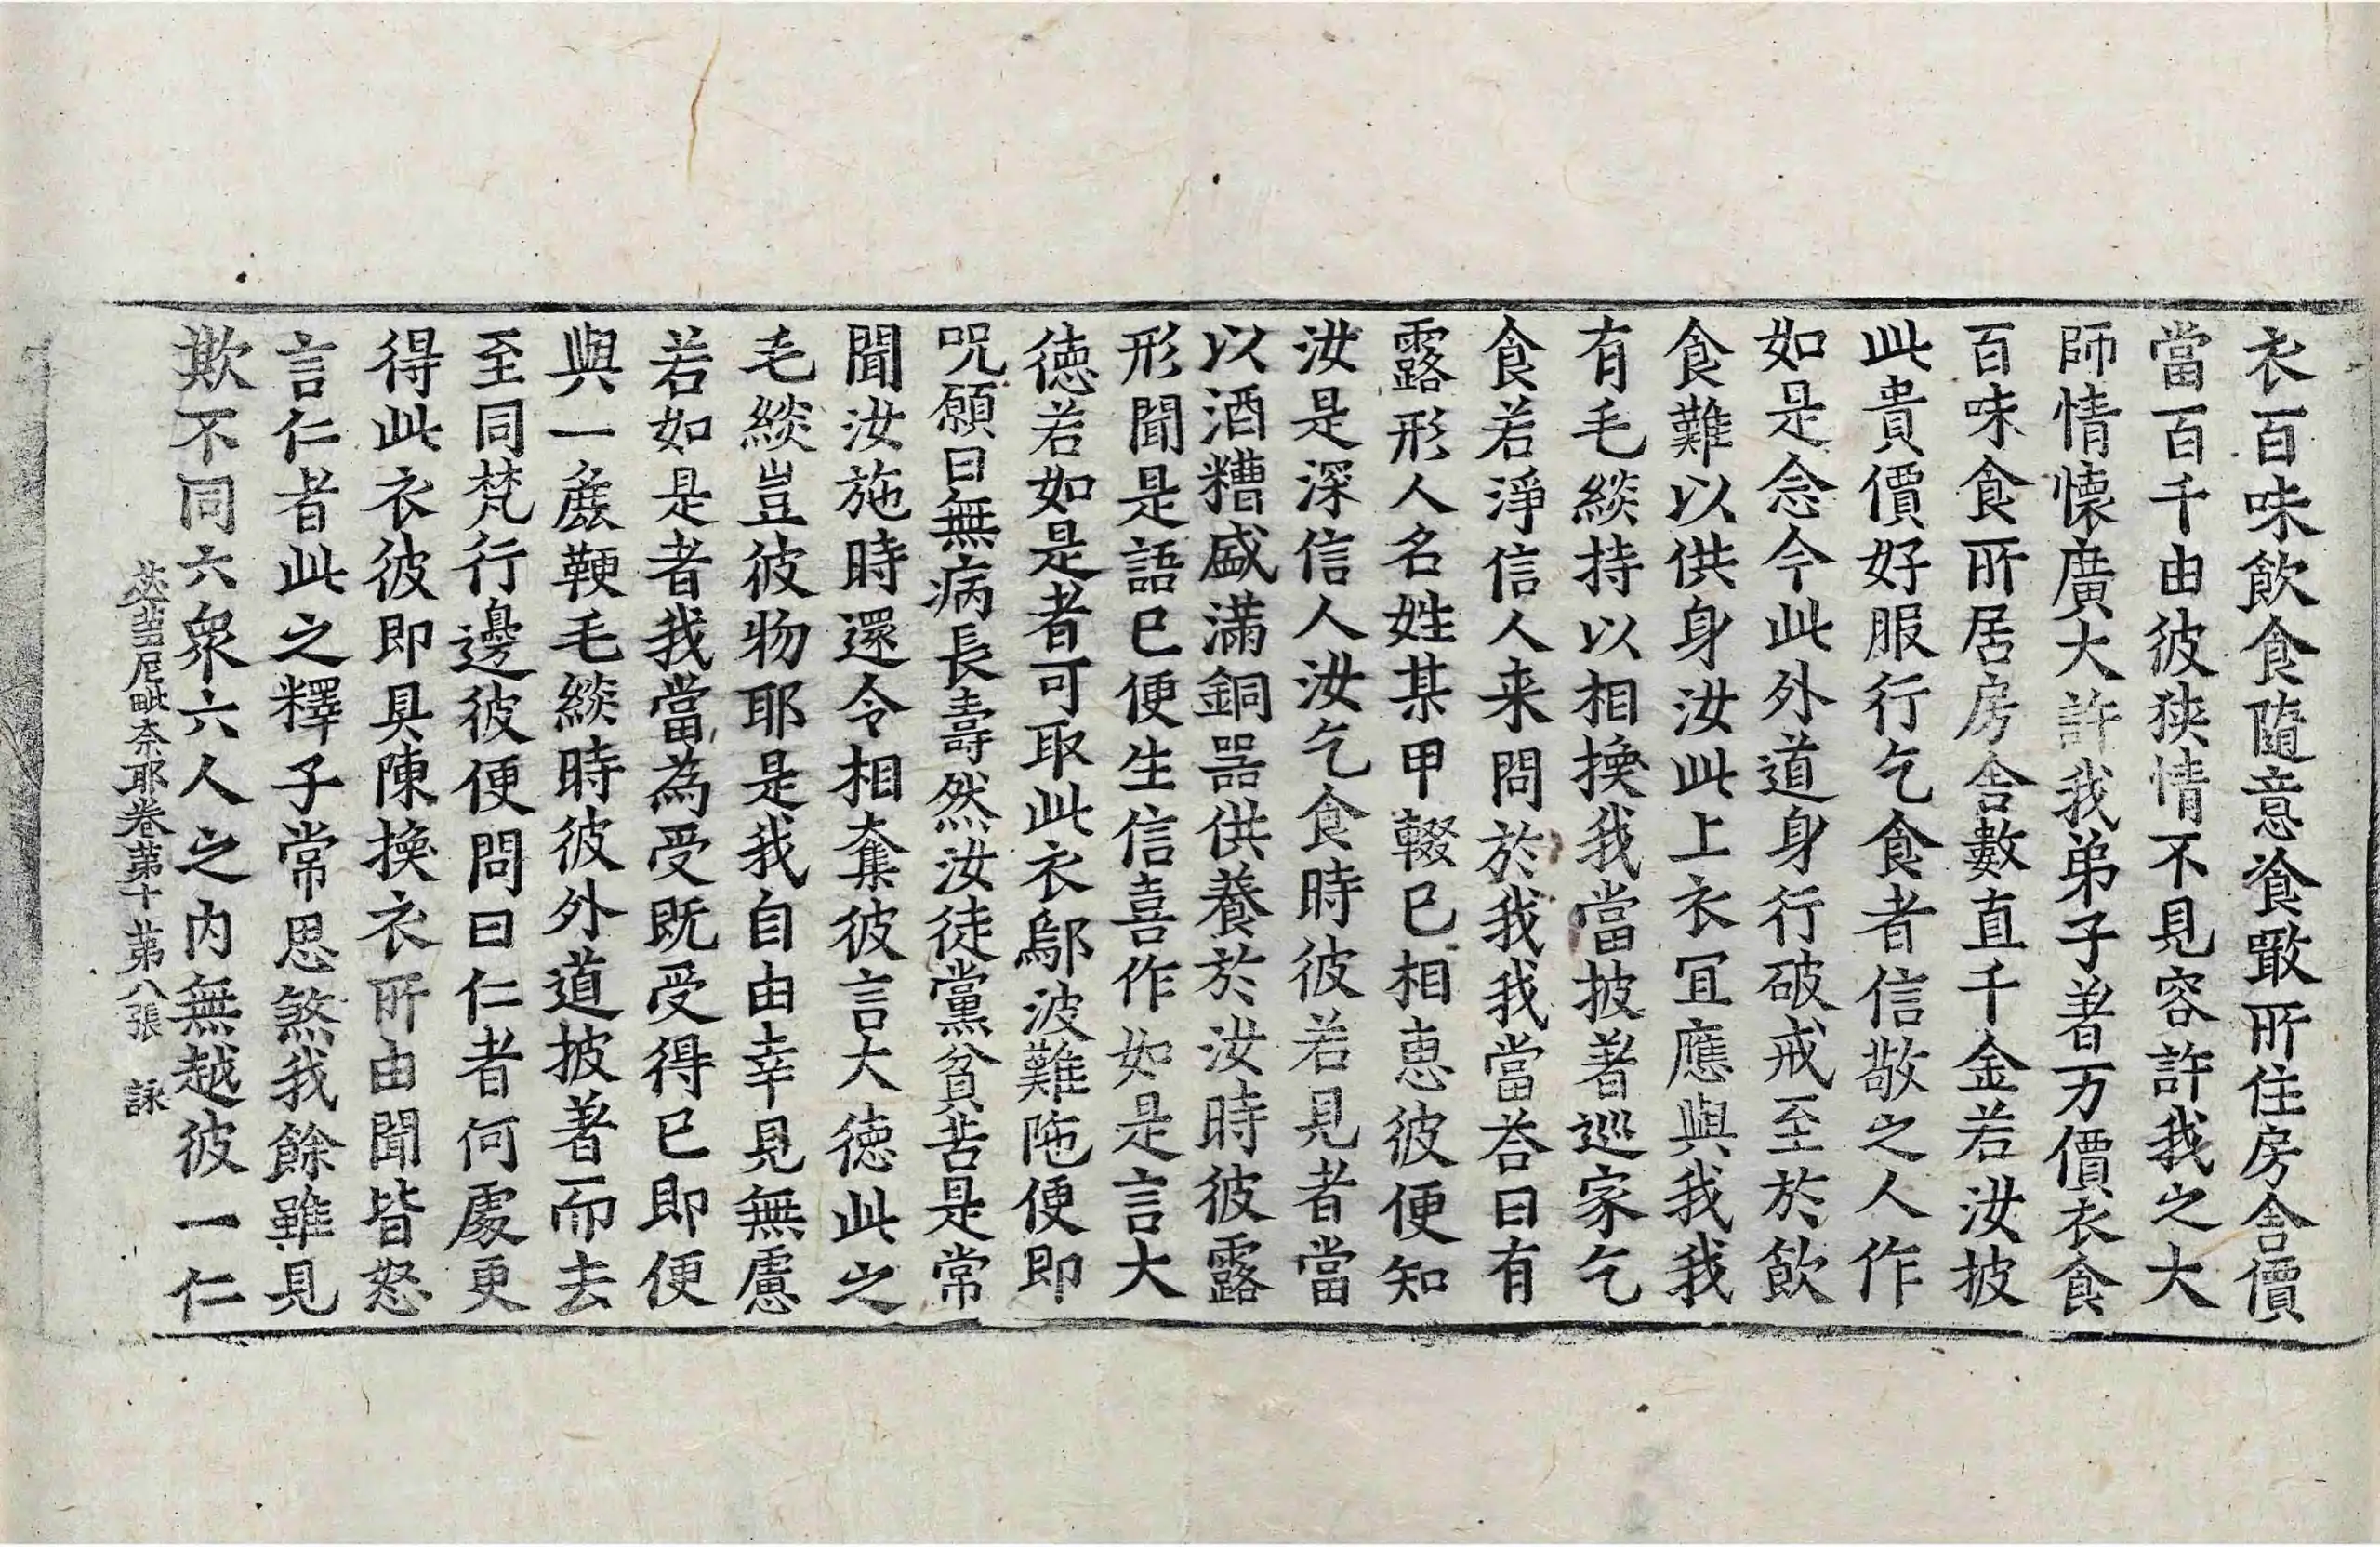 衣百味飲食隨意飡噉所住房舍價
當百千由彼狹情不見容許我之大
師情懷廣大許我弟子著万價衣食
百味食所居房舍數直千金若汝披
此貴價好服行乞食者信敬之人作
如是念今此外道身行破戒至於飲
食難以供身汝此上衣冝應與我我
有毛緂持以相換我當披著巡家乞
食若淨信人来問於我我當荅曰有
露形人名姓某甲輟已相恵彼便知
汝是深信人汝乞食時彼若見者當
以酒糟盛滿銅器供養於汝時彼露
形聞是語已便生信喜作如是言大
徳若如是者可取此衣鄔波難陁便即
呪願曰無病長壽然汝徒黨貧苦是常
聞汝施時還令相奪彼言大徳此之
毛緂豈彼物耶是我自由幸見無慮
若如是者我當為受既受得已即便
與一麁鞕毛緂時彼外道披著而去
至同梵行邊彼便問曰仁者何處更
得此衣彼即具陳換衣所由聞皆怒
言仁者此之釋子常思煞我餘雖見
欺不同六衆六人之内無越彼一仁
苾蒭尼毗奈耶卷苐十 苐八張 詠